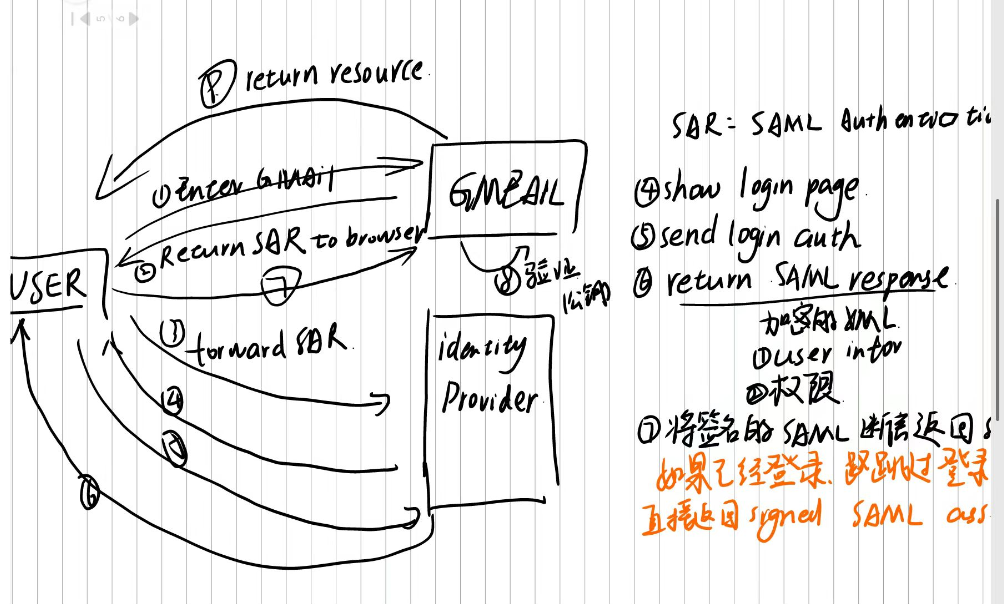 5 6
⑨ return resource.
① Enter GMAil
② Return SAR to browser
⑦
GMEAIL
⑧ 验证
公钥
USER
③
forward SAR
④
⑤
⑥
identity
Provider
SAR = SAML
④ show login page.
⑤ send login auth
⑥ return SAML response
加密的XML
① user infor
② 权限
⑦ 将签名的 SAML 断信返回 S
如果已经登录. 跳过登录
直接返回 signed SAML ass